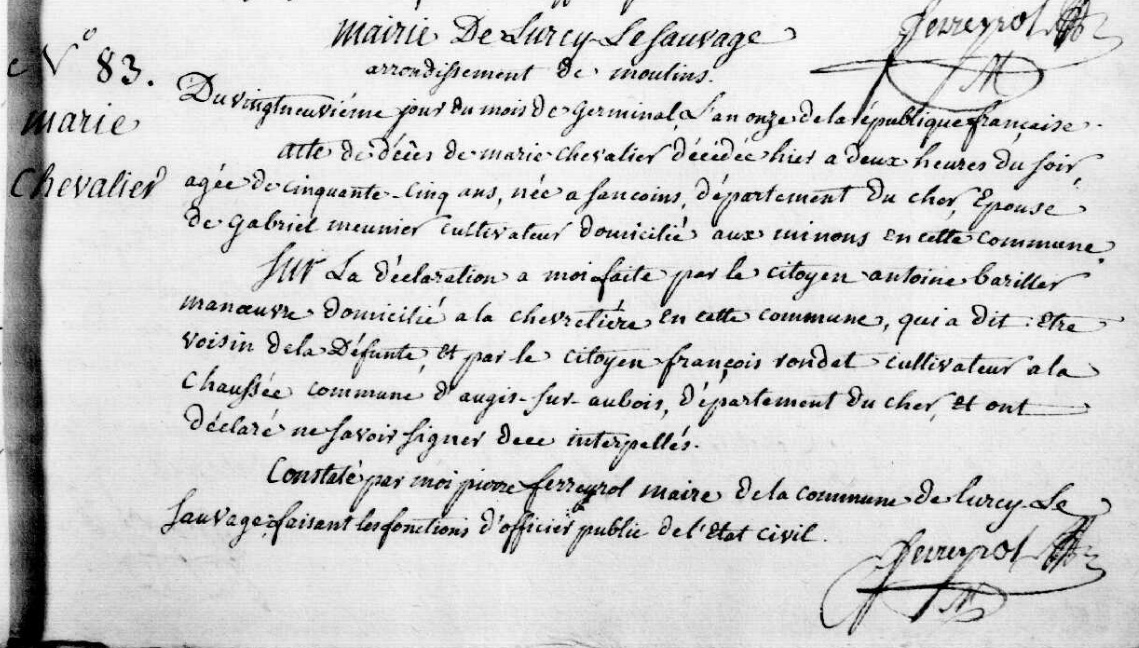 Mairie De Lurcy-Le Sauvage
ferreyrol
arrondissement de moulins.
M
N° 83.
marie
Chevalier
Du vingtneuvième jour du mois de Germinal, L'an onze de la république française.
acte de décès de marie Chevalier décédée hier a deux heures du soir,
agée de cinquante-cinq ans, née a sancoins, département du cher, Epouse
de Gabriel meunier cultivateur domicilié aux minons en cette commune.
Sur La déclaration a moi faite par le citoyen antoine bariller
manœuvre domicilié a la chevretière en cette commune, qui a dit : Etre
voisin de la Défunte et par le citoyen françois rondet cultivateur a la
Chaussée commune d'augis-sur-aubois, département du cher, Et ont
déclaré ne savoir signer de ce interpellés.
Constaté par moi pierre ferreyrol maire de la commune de lurcy-Le
Sauvage faisant les fonctions d'officier public de l'Etat civil.
ferreyrol
M